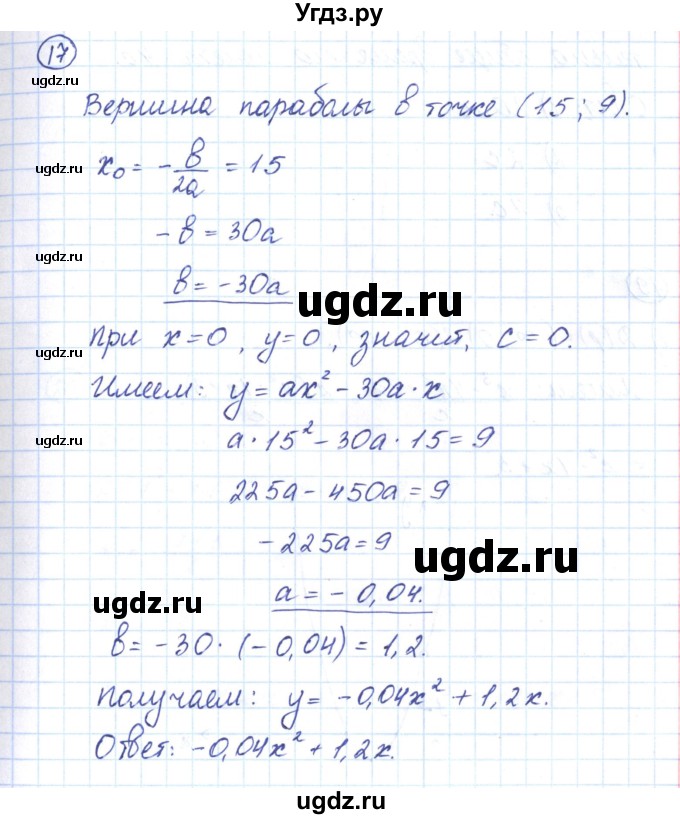 Угдз.ру
17
ugdz.ru
Вершина параболы в точке (15; 9).
ugdz.ru
x₀ = -b/2a = 15
-b = 30a
ugdz.ru
b = -30a
ugdz.ru
при x=0, y=0, значит, c=0.
ugdz.ru
Имеем: y = ax² - 30a·x
ugdz.ru
a·15² - 30a·15 = 9
225a - 450a = 9
-225a = 9
ugdz.ru
a = -0,04.
ugdz.ru
b = -30·(-0,04) = 1,2.
получаем: y = -0,04x² + 1,2x.
Ответ: -0,04x² + 1,2x.
ugdz.ru